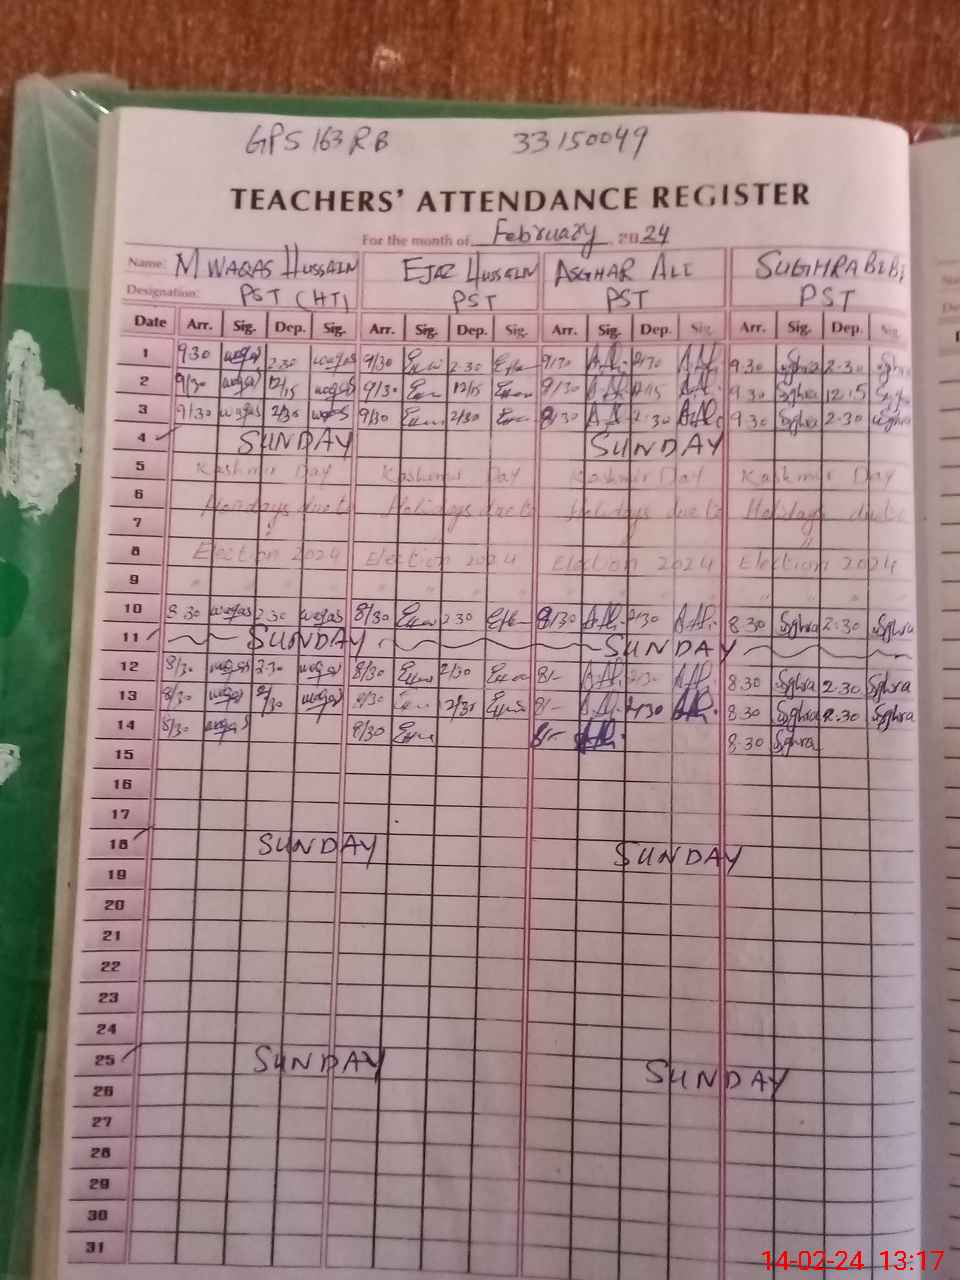 GPS 163 RB 33150049
TEACHERS' ATTENDANCE REGISTER
For the month of February 2024
Name: M WAQAS HUSSAIN EJAZ HUSSAIN ASGHAR ALI SUGHRA BIBI
Designation: PST (HT) PST PST PST
Date Arr. Sig. Dep. Sig. Arr. Sig. Dep. Sig. Arr. Sig. Dep. Sig. Arr. Sig. Dep. Sig.
1 9 30 waqas 2 30 waqas 9/30 2 30 9/30 2/30 9 30 Sghra 2.30 Sghra
2 9/30 waqas 12/15 waqas 9/30 12/15 9/30 12/15 9 30 Sghra 12.15 Sghra
3 9/30 waqas 2/30 waqas 9/30 2/30 9/30 2:30 9 30 Sghra 2.30 Sghra
4 SUNDAY SUNDAY
5 Kashmir Day Kashmir Day Kashmir Day Kashmir Day
6
7 Holidays due to Holidays due to Holidays due to Holidays due to
8 Election 2024 Election 2024 Election 2024 Election 2024
9
10 8 30 waqas 2 30 waqas 8/30 2 30 8/30 2/30 8 30 Sghra 2.30 Sghra
11 SUNDAY SUNDAY
12 8/30 waqas 2.30 waqas 8/30 2/30 8/- 2/30 8.30 Sghra 2.30 Sghra
13 8/30 waqas 2/30 waqas 8/30 2/30 8/- 2/30 8.30 Sghra 2.30 Sghra
14 8/30 waqas 8/30 8/- 8.30 Sghra
15
16
17
18 SUNDAY SUNDAY
19
20
21
22
23
24
25 SUNDAY SUNDAY
26
27
28
29
30
31
14-02-24 13:17